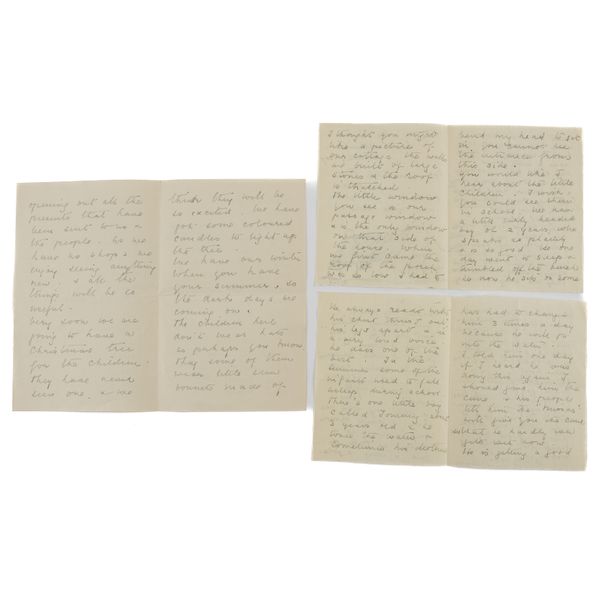 opening out all the
presents that have
been sent to us &
the people. As we
have no shops we
enjoy seeing anything
new. & all the
things will be so
useful.
Very soon we are
going to have a
Christmas tree
for the children
They have never
seen one. & we
think they will be
so excited. We have
got some coloured
candles to light up
the tree.
We have our winter
when you have
your summer, so
the dark days are
coming on.
The children here
don't wear hats
as perhaps you know
They some of them
wear little
bonnets made of
I thought you might
like a picture of
our cottage the walls
are built of large
stones & the roof
is thatched
The little window
you see is our
passage window
& is the only window
on that side of
the house. When
we first came the
roof of the porch
was so low I had to
bend my head to get
in you cannot see
the entrance from
this side.
You would like to
hear about the little
children. I wish
you could see them
in school. We have
a little curly headed
boy of 2 years who
speaks so plainly
& is so good. He one
day went to sleep &
tumbled off the bench
so now he sits on some
He always reads with
his chest thrust out
his legs apart & in
a very loud voice
he does one of the
best. In the
summer some of the
infants used to fall
asleep during school
There's one little boy
called Tommy about
3 years old & he
loves the water &
sometimes his mother
has had to change
him 3 times a day
because he will go
into the water.
I told him one day
if I heard he was
doing this again I
should give him the
cane & his people
tells him
will give you the cane
so that he hardly ever
gets wet now.
He is getting a good